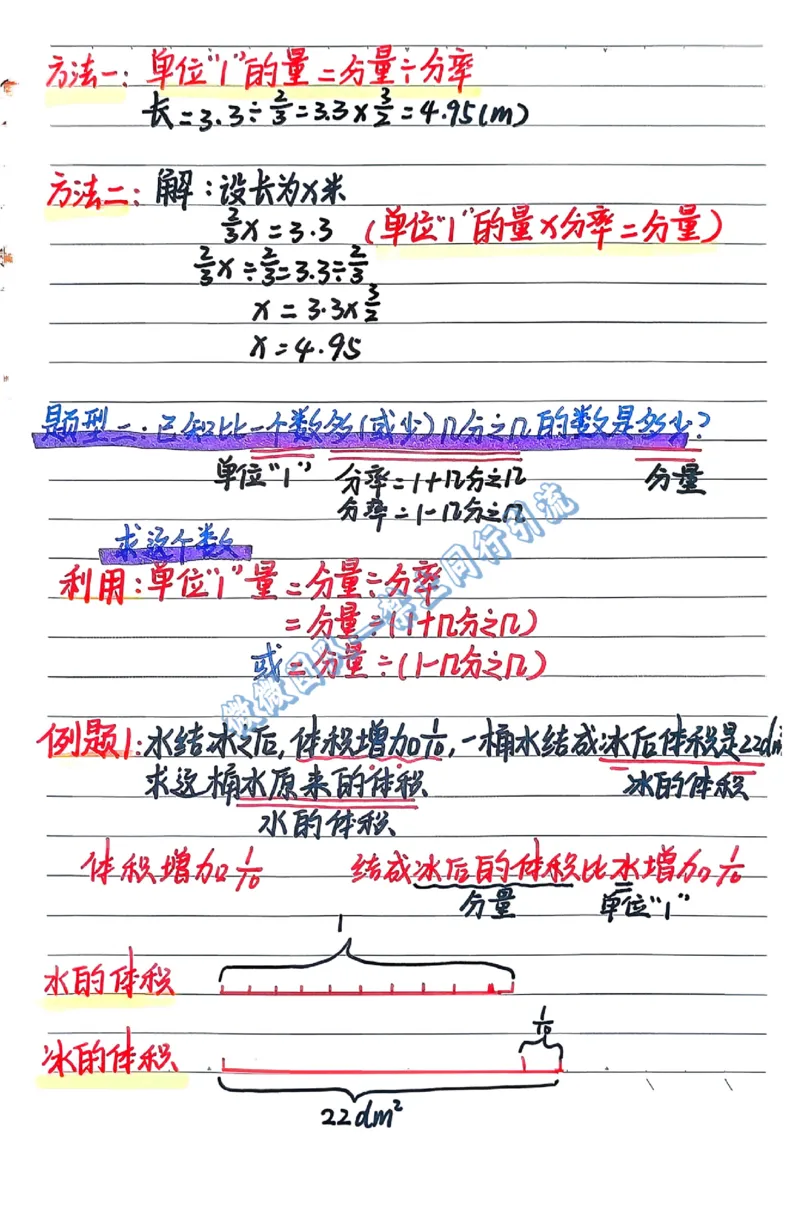 方法一:单位"1"的量=分量÷分率
长=3.3÷2/3=3.3×3/2=4.95(m)
方法二:解:设长为x米
2/3x=3.3 (单位"1"的量×分率=分量)
2/3x÷2/3=3.3÷2/3
x=3.3×3/2
x=4.95
题型二.已知比一个数多(或少)几分之几的数是多少?
单位"1" 分率=1+几分之几 分量
分率=1-几分之几
求这个数
利用:单位"1"量=分量÷分率
=分量÷(1+几分之几)
或=分量÷(1-几分之几)
例题1:水结冰之后,体积增加1/10,一桶水结成冰后体积是22dm
求这桶水原来的体积 冰的体积
水的体积
体积增加1/10 结成冰后的体积比水增加1/10
分量 单位"1"
1
水的体积
1/10
冰的体积
22dm²